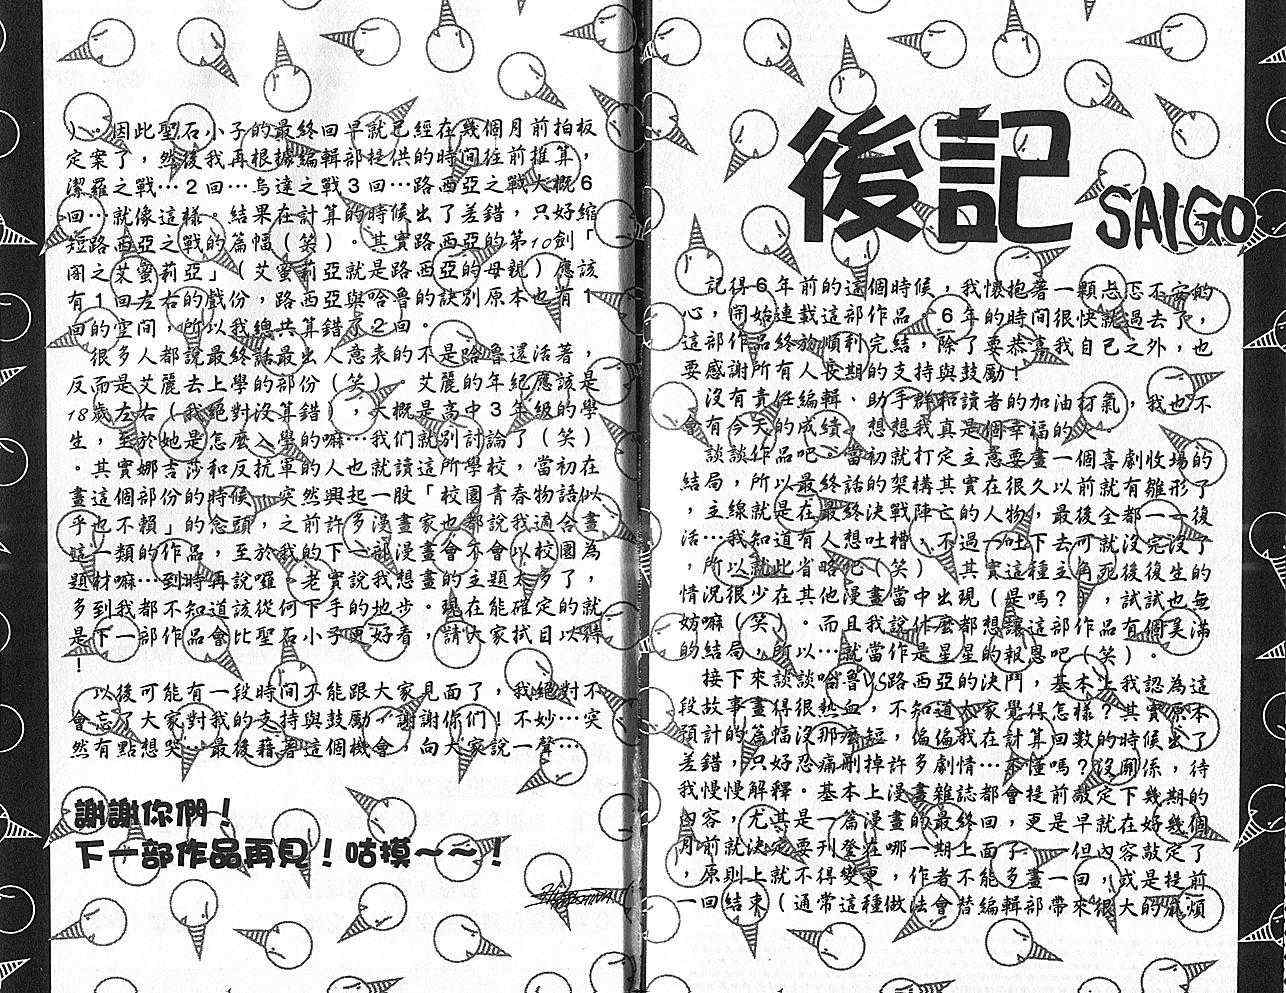 後記 SAIGO
記得6年前的這個時候，我懷抱著一顆忐忑不安的
心，開始連載這部作品。6年的時間很快就過去了，
這部作品終於順利完結，除了要恭喜我自己之外，也
要感謝所有人長期的支持與鼓勵！
沒有責任編輯、助手群和讀者的加油打氣，我也不
會有今天的成績，想想我真是個幸福的人。
談談作品吧。當初就打定主意要畫一個喜劇收場的
結局，所以最終話的架構其實在很久以前就有雛形了
，主線就是在最終決戰陣亡的人物，最後全都一一復
活…我知道有人想吐槽，不過一吐下去可就沒完沒了
，所以就此省略吧（笑）。其實這種主角死後復生的
情況很少在其他漫畫當中出現（是嗎？），試試也無
妨嘛（笑）。而且我說什麼都想讓這部作品有個美滿
的結局，所以…就當作是星星的報恩吧（笑）。
接下來談談哈魯VS路西亞的決鬥，基本上我認為這
段故事畫得很熱血，不知道大家覺得怎樣？其實原本
預計的篇幅沒那麼短，偏偏我在計算回數的時候出了
差錯，只好忍痛刪掉許多劇情…不懂嗎？沒關係，待
我慢慢解釋。基本上漫畫雜誌都會提前敲定下幾期的
內容，尤其是一篇漫畫的最終回，更是早就在好幾個
月前就決定要刊登在哪一期上面了。一但內容敲定了
，原則上就不得變更，作者不能多畫一回，或是提前
一回結束（通常這種做法會替編輯部帶來很大的麻煩
）…因此聖石小子的最終回早就已經在幾個月前拍板
定案了，然後我再根據編輯部提供的時間往前推算，
潔羅之戰…2回…烏達之戰3回…路西亞之戰大概6
回…就像這樣。結果在計算的時候出了差錯，只好縮
短路西亞之戰的篇幅（笑）。其實路西亞的第10劍「
闇之艾蜜莉亞」（艾蜜莉亞就是路西亞的母親）應該
有1回左右的戲份，路西亞與哈魯的訣別原本也有1
回的空間，所以我總共算錯了2回。
很多人都說最終話最出人意表的不是哈魯還活著，
反而是艾麗去上學的部份（笑）。艾麗的年紀應該是
18歲左右（我絕對沒算錯），大概是高中3年級的學
生，至於她是怎麼入學的嘛…我們就別討論了（笑）
。其實娜吉莎和反抗軍的人也就讀這所學校，當初在
畫這個部份的時候，突然興起一股「校園青春物語似
乎也不賴」的念頭，之前許多漫畫家也都說我適合畫
這一類的作品，至於我的下一部漫畫會不會以校園為
題材嘛…到時再說囉。老實說我想畫的主題太多了，
多到我都不知道該從何下手的地步。現在能確定的就
是下一部作品會比聖石小子更好看，請大家拭目以待
！
以後可能有一段時間不能跟大家見面了，我絕對不
會忘了大家對我的支持與鼓勵，謝謝你們！不妙…突
然有點想哭。最後藉著這個機會，向大家說一聲…
謝謝你們！
下一部作品再見！咕摸～～！